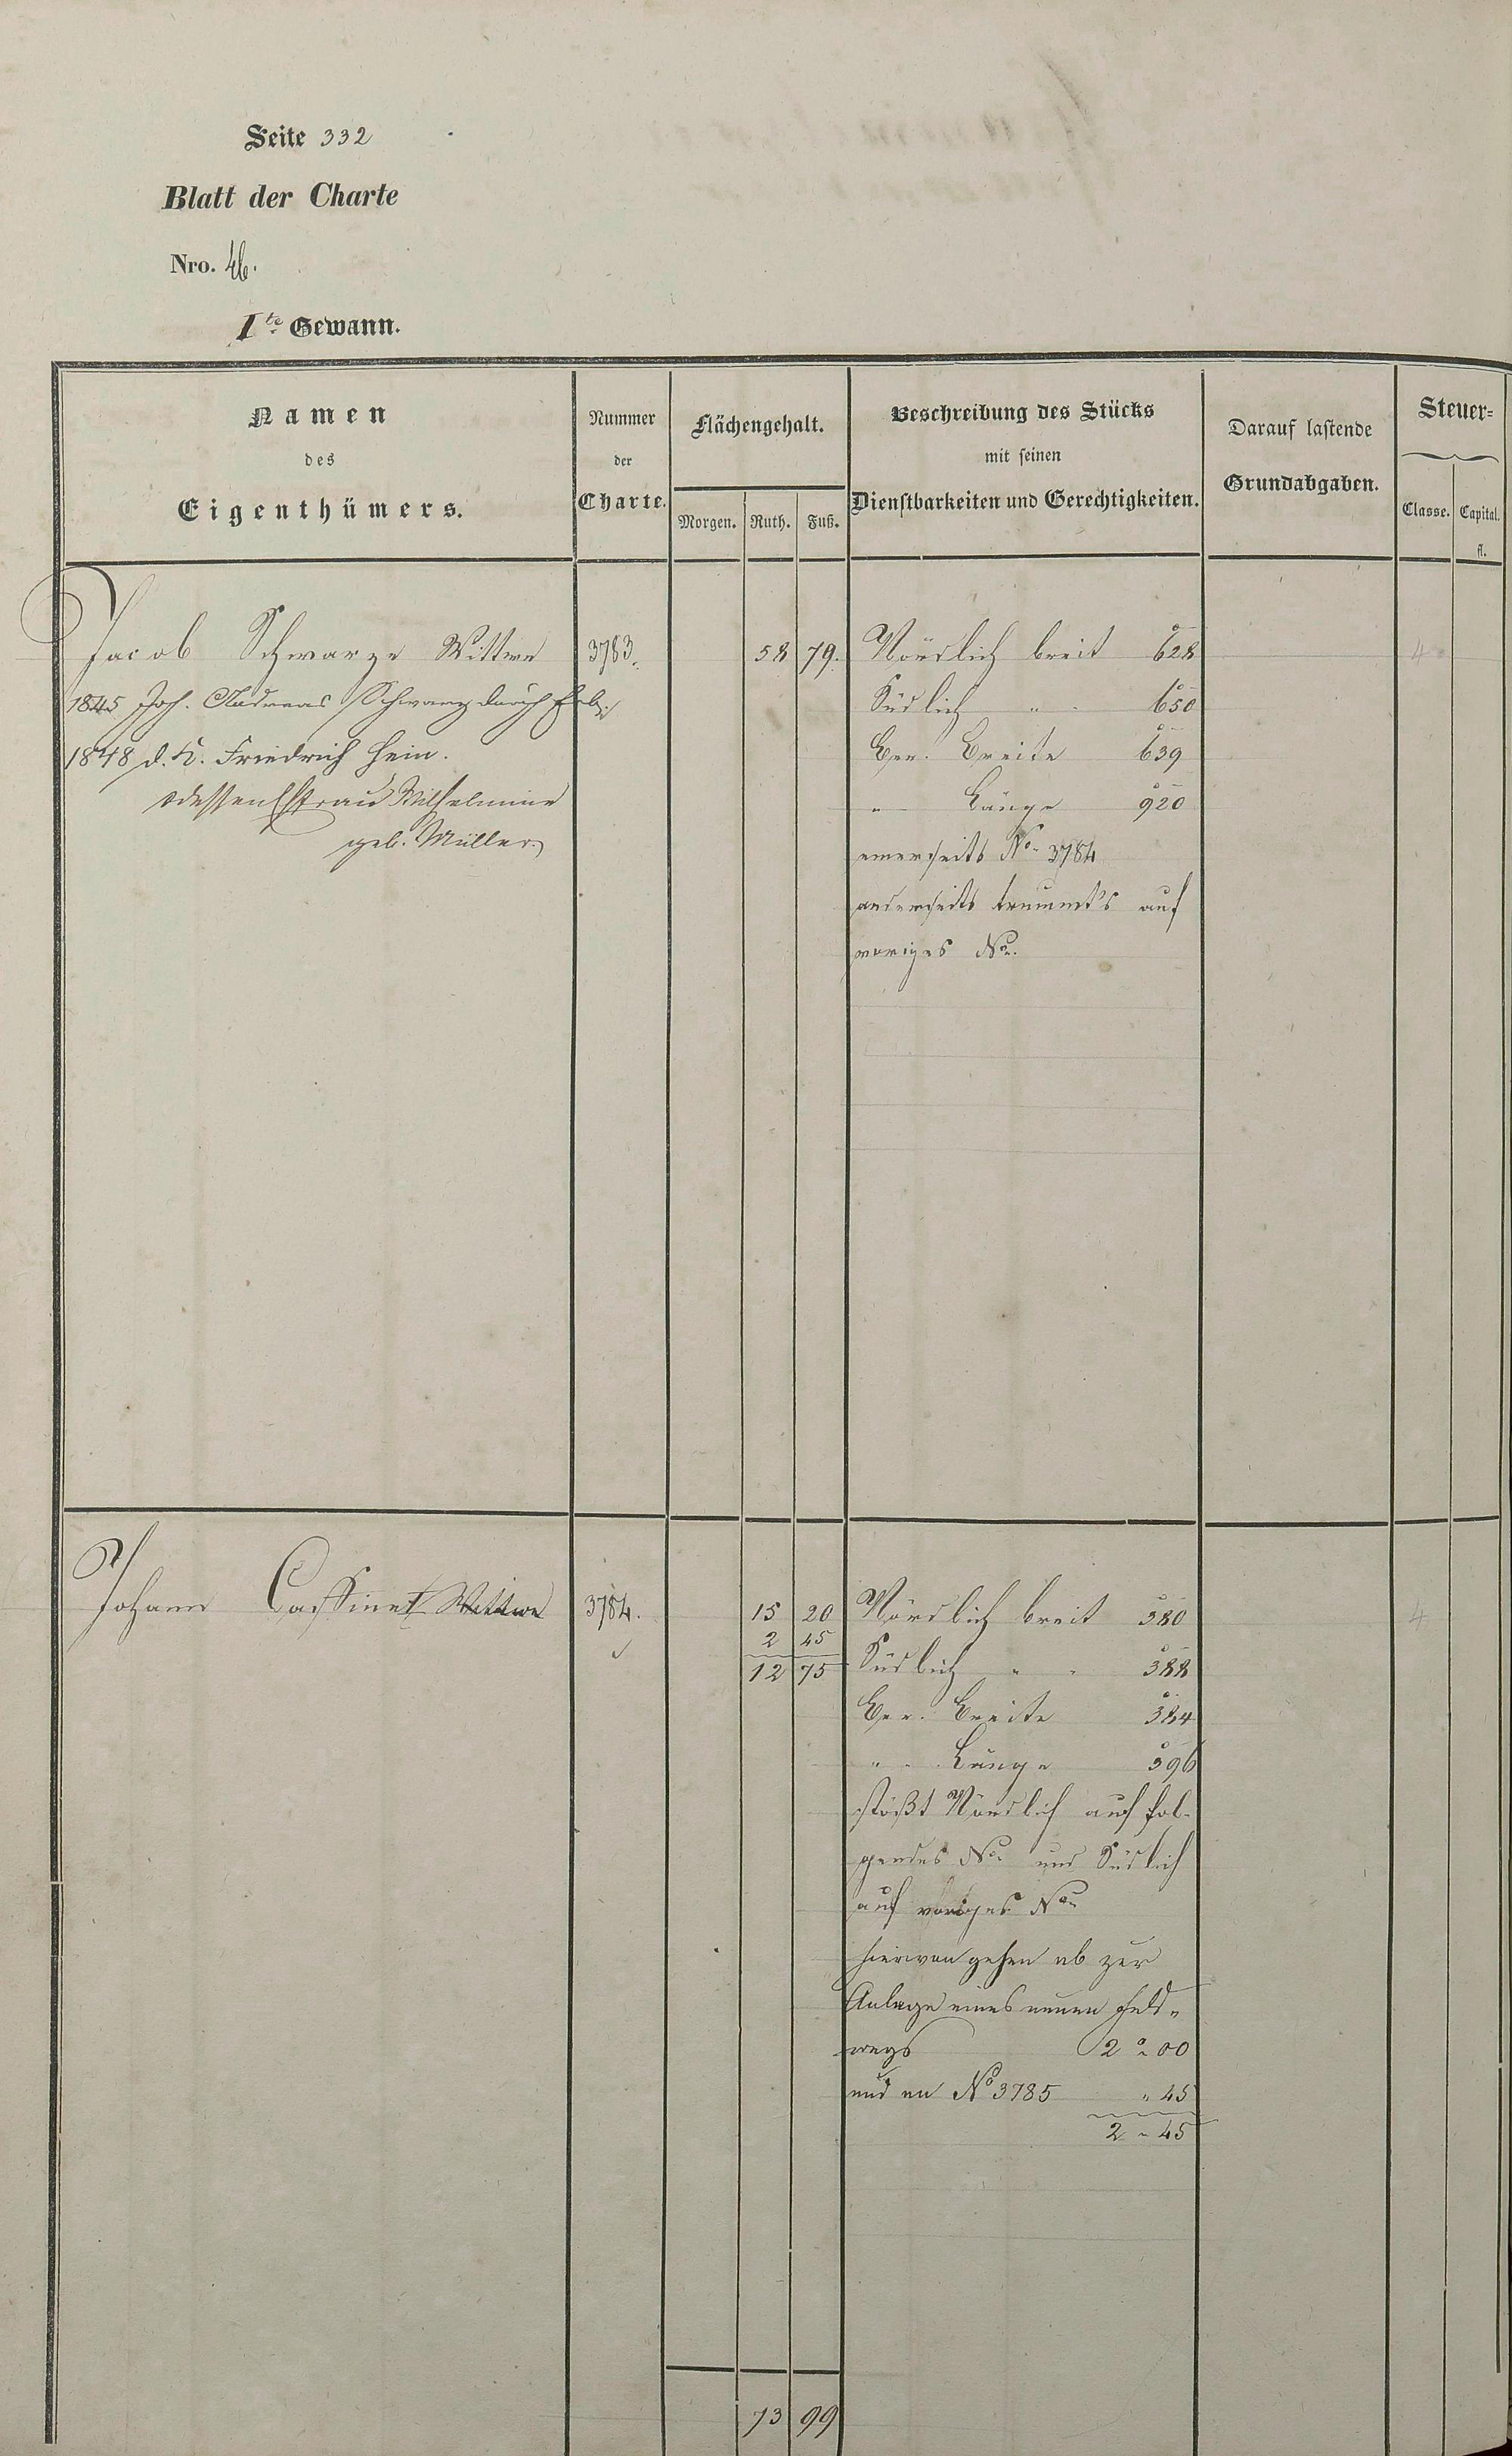 Seite 332
Blatt der Charte
Nro. 46.
Ite Gewann.
Namen
des
Eigenthümers.
Nummer
der
Charte.
Flächengehalt.
Morgen. Ruth. Fuß.
Beschreibung des Stücks
mit seinen
Dienstbarkeiten und Gerechtigkeiten.
Darauf lastende
Grundabgaben.
Steuer=
Classe. Capital.
fl.
Jacob Schwarze Wittwe 3783. 58 79. Nördlich breit 628 4
1845 Joh. Andreas Schwarz durch Erb. Südlich " - 650
1848 d. K. Friedrich Hein. Ger. Breite 639
dessen Ehefrau Wilhelmine " Länge 920
geb. Müller. einerseits No 3784
anderseits trummt's auf
voriges No.
Johann Cassinet Wittwe 3784. 15 20 Nördlich breit 380 4
2 45
12 75 Südlich " - 388
Ger. Breite 384
" - Länge 396
stößt Nördlich auf fol-
gendes No und Südlich
auf voriges No
hiervon gehen ab zur
Anlage eines neuen Feld-
wegs 2 " 00
und an No 3785 " 45
2 " 45
73 99